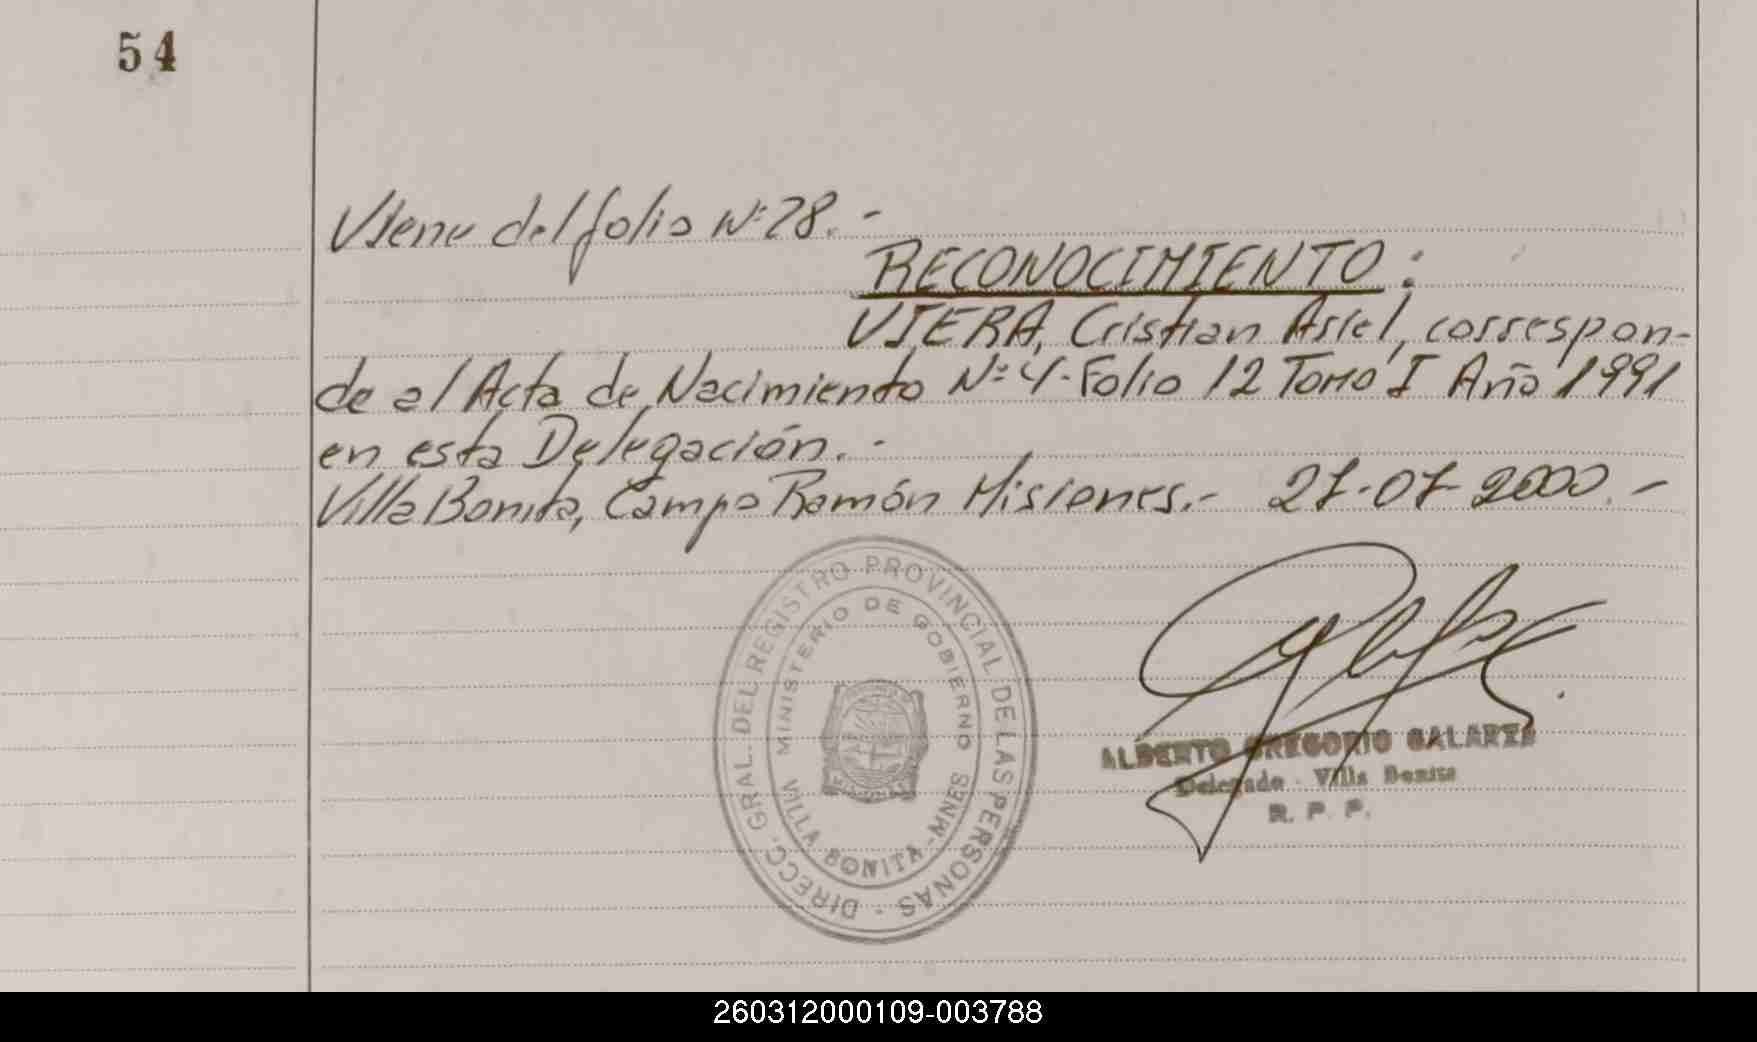 54
Viene del folio Nº 28.-
RECONOCIMIENTO:
VIERA, Cristian Asiel, correspon-
de al Acta de Nacimiento Nº 4. Folio 12 Tomo I Año 1991
en esta Delegación.-
Villa Bonita, Campo Ramón Misiones.- 27-07-2000.-
DIRECC. GRAL. DEL REGISTRO PROVINCIAL DE LAS PERSONAS -
MINISTERIO DE GOBIERNO
VILLA BONITA - MNES
ALBERTO GREGORIO GALARZA
Delegado - Villa Bonita
R. P. P.
260312000109-003788